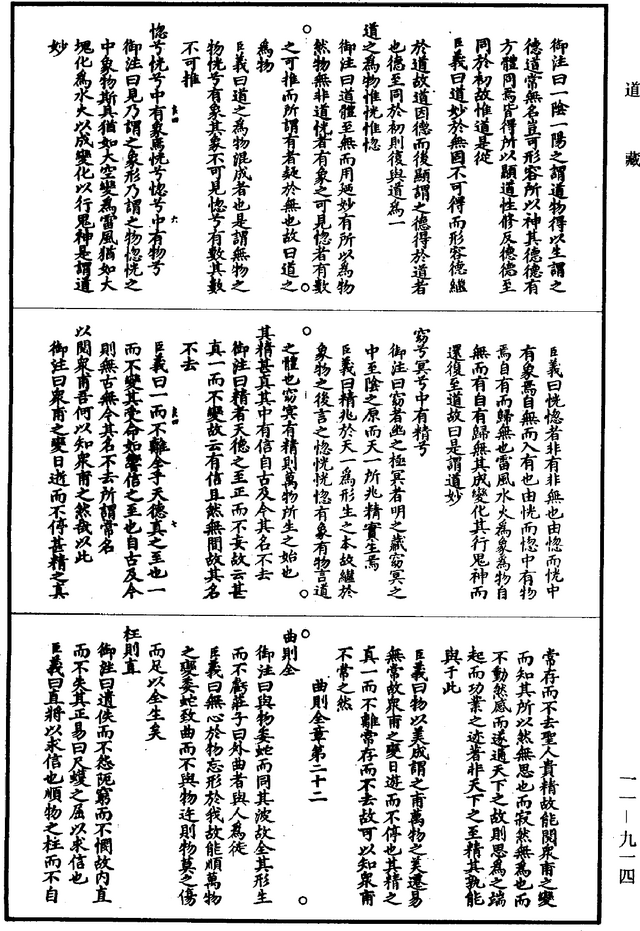 道藏
御注曰一陰一陽之謂道物得以生謂之
德道常無名豈可形容所以神其德德有
方體同焉皆得所以顯道性修反德德至
同於初故惟道是從
臣義曰道妙於無因不可得而形容德繼
於道故道因德而後顯謂之德得於道者
也德至同於初則復與道為一
道之為物惟恍惟惚
御注曰道體至無而用迺妙有所以為物
然物無非道恍者有象之可見惚者有數
之可推而所謂有者疑於無也故曰道之
為物
臣義曰道之為物混成者也是謂無物之
物恍兮有象其象不可見惚兮有數其數
不可推
惚兮恍兮中有象焉恍兮惚兮中有物兮
御注曰見乃謂之象形乃謂之物惚恍之
中象物斯具猶如大空變為雷風猶如大
塊化為水火以成變化以行鬼神是謂道
妙
臣義曰恍惚者非有非無也由惚而恍中
有象焉自無而入有也由恍而惚中有物
焉自有而歸無也雷風水火為象為物自
無而有自有歸無其成變化其行鬼神而
還復至道故曰是謂道妙
窈兮冥兮中有精兮
御注曰窈者幽之極冥者明之藏窈冥之
中至陰之原而天一所兆精實生焉
臣義曰精兆於天一為形生之本故繼於
象物之後言之惚恍恍惚有象有物言道
之體也窈冥有精則萬物所生之始也
其精甚真其中有信自古及今其名不去
御注曰精者天德之至正而不妄故云甚
真一而不變故云有信且然無間故其名
不去
臣義曰一而不離全乎天德真之至也一
而不變其受命如響信之至也自古及今
則無古無今其名不去所謂常名
以閱眾甫吾何以知眾甫之然哉以此
御注曰眾甫之變日逝而不停甚精之真
常存而不去聖人貴精故能閱眾甫之變
而知其所以然無思也而寂然無為也而
不動然感而遂通天下之故則思為之端
起而功業之迹著非天下之至精其孰能
與于此
臣義曰物以美成謂之甫萬物之美還易
無常故眾甫之變日逝而不停也其精之
真一而不離常存而不去故可以知眾甫
不常之然
曲則全章第二十二
曲則全
御注曰與物委蛇而同其波故全其形生
而不虧莊子曰外曲者與人為徒
臣義曰無心於物忘形於我故能順萬物
之變委蛇致曲而不與物迕則物莫之傷
而足以全生矣
枉則直
御注曰遺佚而不怨阨窮而不憫故內直
而不失其正易曰尺蠖之屈以求信也
臣義曰直將以求信也順物之枉而不自
一一—九一四